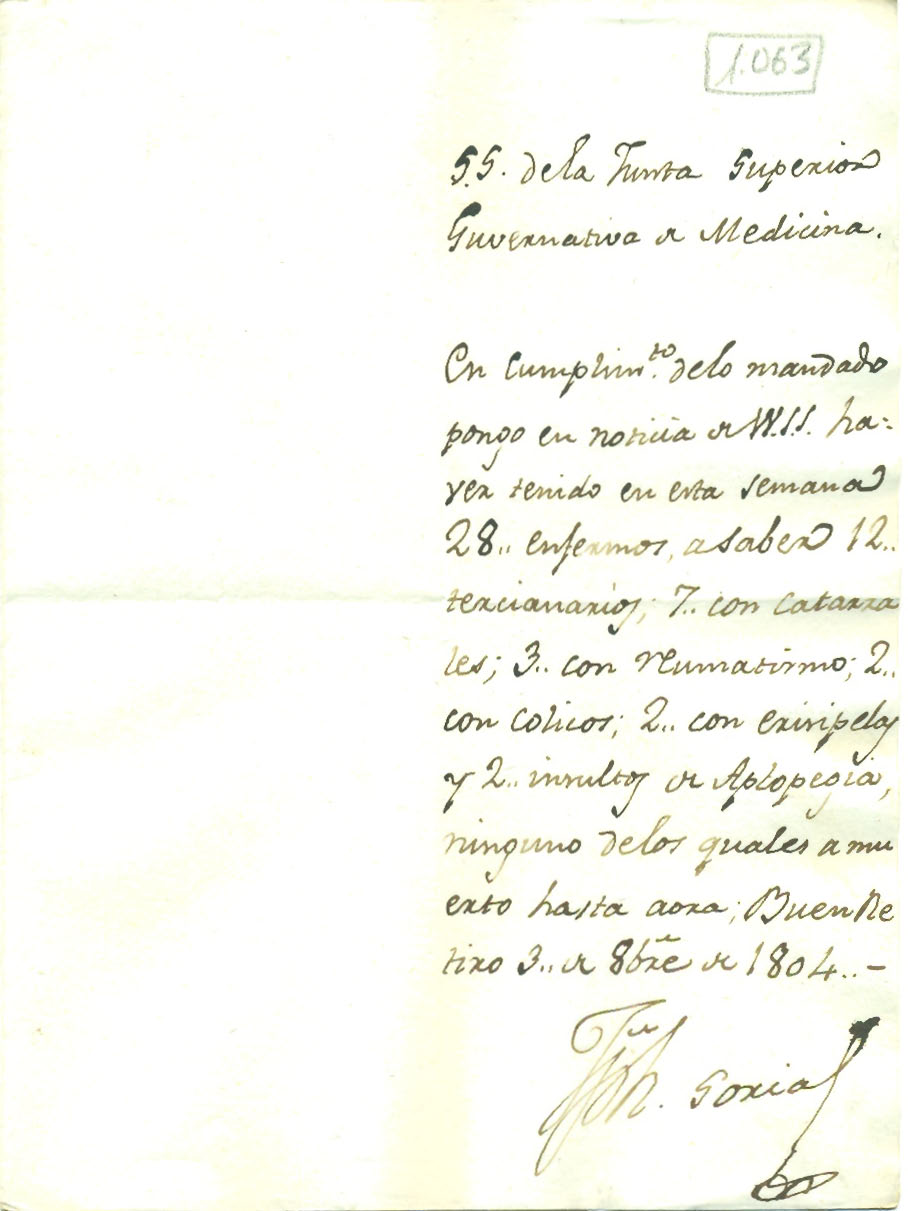 1.063
S.S. dela Junta Superior
Guvernativa de Medicina.
En Cumplim.to delo mandado
pongo en noticia de VV.SS. ha-
ver tenido en esta semana
28.. enfermos, a saber 12..
tercianarios; 7.. con Catarra
les; 3.. con reumatismo; 2..
con Colicos; 2.. con erisipelas
y 2.. insultos de Aplopegia,
ninguno delos quales a mu
erto hasta aora; Buen Re
tiro 3.. de 8bre de 1804..-
Soria